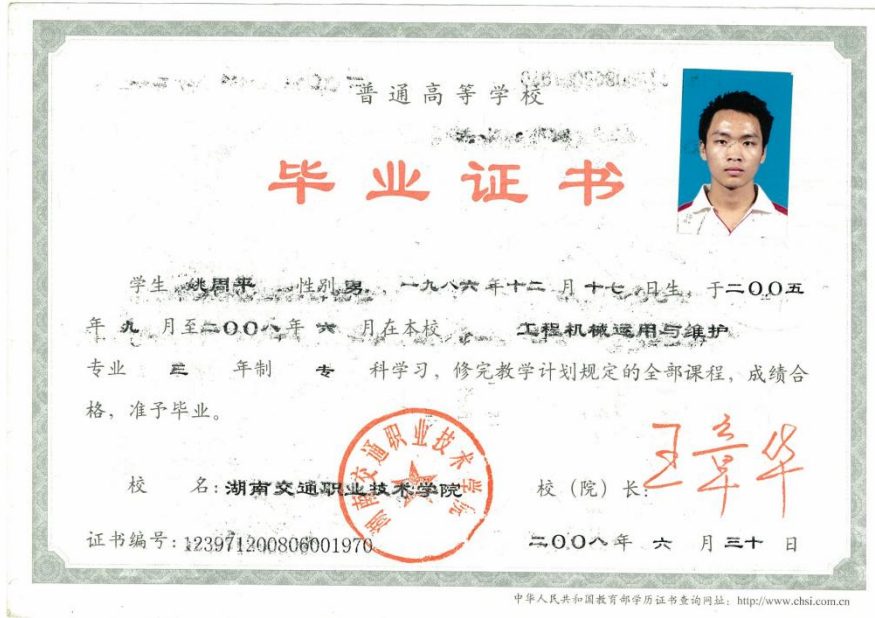 普通高等学校
毕业证书
学生 姚周平 性别 男 , 一九八六 年 十二 月 十七 日生, 于二〇〇五
年 九 月至二〇〇八年 六 月在本校 工程机械运用与维护
专业 三 年制 专 科学习, 修完教学计划规定的全部课程, 成绩合
格, 准予毕业。
湖南交通职业技术学院
校 名: 湖南交通职业技术学院 校 (院) 长: 王章华
证书编号: 123971200806001970 二〇〇八年 六 月 三十 日
中华人民共和国教育部学历证书查询网址: http://www.chsi.com.cn